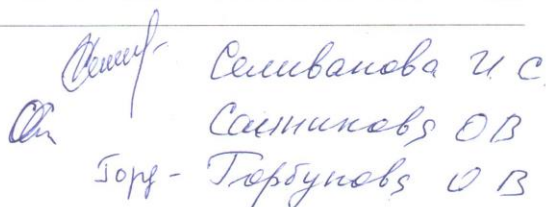 Селиванова И С
Санникова О В
Горб- Горбунова О В